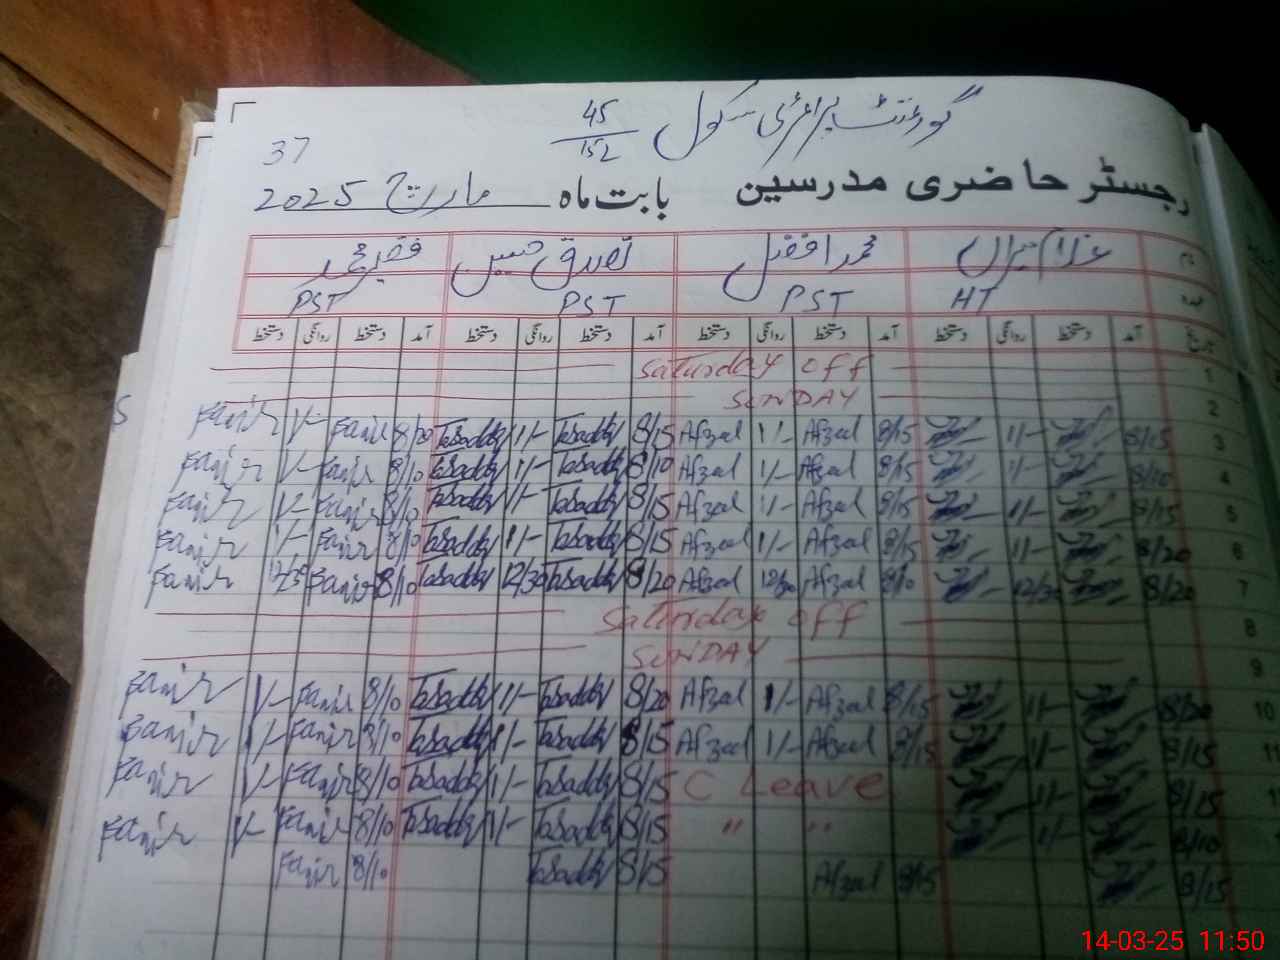 گورنمنٹ پرائمری سکول 45/152
37
رجسٹر حاضری مدرسین بابت ماہ مارچ 2025
نام غلام میراں محمد افضل تصدق حسین فقیر محمد
عہدہ HT PST PST PST
تاریخ آمد دستخط روانگی دستخط آمد دستخط روانگی دستخط آمد دستخط روانگی دستخط آمد دستخط روانگی دستخط
1 Saturday off
2 SUNDAY
3 8/15 1/- 8/15 Afzal 1/- Afzal 8/15 Tasaddq 1/- Tasaddq 8/20 1/-
4 8/10 1/- 8/15 Afzal 1/- Afzal 8/10 Tasaddq 1/- Tasaddq 8/10 1/-
5 8/15 1/- 8/15 Afzal 1/- Afzal 8/15 Tasaddq 1/- Tasaddq 8/10 1/-
6 8/20 1/- 8/15 Afzal 1/- Afzal 8/15 Tasaddq 1/- Tasaddq 8/10 1/-
7 8/20 12/30 8/10 Afzal 12/30 Afzal 8/20 Tasaddq 12/30 Tasaddq 8/10 12/30
8 Saturday off
9 SUNDAY
10 8/20 1/- 8/15 Afzal 1/- Afzal 8/20 Tasaddq 1/- Tasaddq 8/10 1/-
8/15 1/- 8/15 Afzal 1/- Afzal 8/15 Tasaddq 1/- Tasaddq 8/10 1/-
8/15 1/- C Leave 8/15 Tasaddq 1/- Tasaddq 8/10 1/-
8/10 1/- " " 8/15 Tasaddq 1/- Tasaddq 8/10 1/-
8/15 8/15 Afzal 8/15 Tasaddq 8/10
14-03-25 11:50